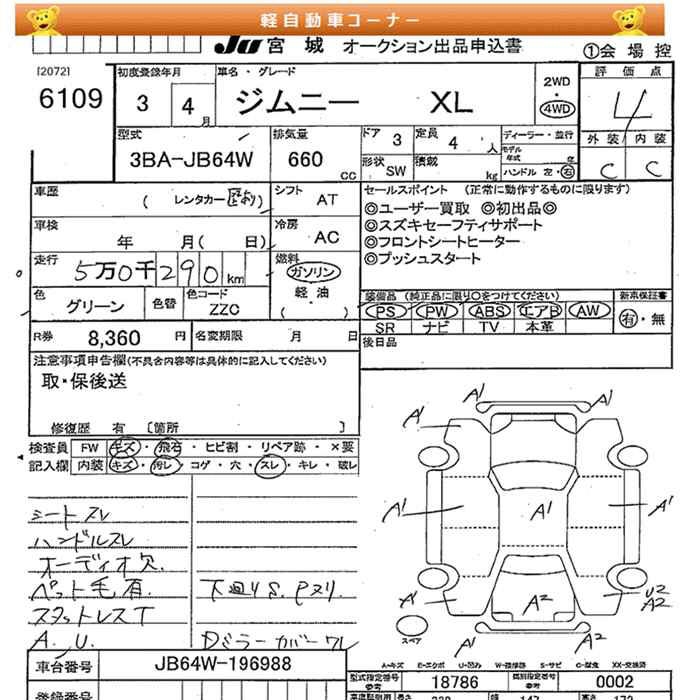 軽自動車コーナー
JU 宮城 オークション出品申込書 ①会場控
[2072]
6109
初度登録年月
3 4月
車名・グレード
ジムニー XL
2WD・4WD
評価点
4
型式
3BA-JB64W
排気量
660 CC
ドア 3
定員 4 人
形状 SW
積載 kg
ディーラー・並行
モデル年式 年
ハンドル 左・右
外装 内装
C C
車歴
( レンタカー 歴あり)
シフト
AT
セールスポイント (正常に動作するものに限ります)
◎ユーザー買取 ◎初出品◎
◎スズキセーフティサポート
◎フロントシートヒーター
◎プッシュスタート
車検
年 月( 日)
冷房
AC
走行
5万0千290km
燃料
ガソリン
軽・油
( )
色
グリーン
色替
色コード
ZZC
装備品 (純正品に限り○をつけてください)
PS PW ABS エアB AW
SR ナビ TV 本革
新車保証書
有・無
R券 8,360 円
名変期限 月 日
後日品
注意事項申告欄(不具合内容等は具体的に記入してください)
取・保後送
修復歴 有 〔箇所 〕
検査員 FW キズ・飛石・ヒビ割・リペア跡・×要
記入欄 内装 キズ・汚レ・コゲ・穴・スレ・キレ・破レ
シートスレ
ハンドルスレ
オーディオ欠
ペット毛有
スタットレスT
A.U.
下廻りS.Pヌリ.
Dミラーカバーワレ
A1 A1
A1 A1
A1 A1 A1
A1 A2 U2 A2
A1 A2
スペア
A-キズ E-エクボ U-凹み W-補修跡 S-サビ C-腐食 XX-交換済
車台番号 JB64W-196988
型式指定番号 参考 18786
類別指定番号 参考 0002
登録番号
長さ
幅 147
高さ 172